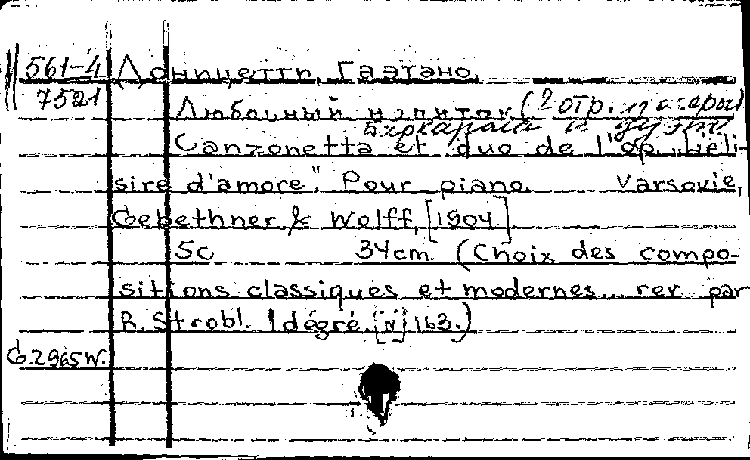 561-4 Доницетти, Гаэтано.
7521 Любовный напиток (2 отр. из оперы)
Баркарола и дуэт
Canzonetta et duo de l'op. „Eli-
sire d'amore". Pour piano. Varsovie,
Gebethner & Wolff, [1904]
5c 34cm (Choix des compo-
sitions classiques et modernes... rev. par
R. Strobl. I dégré. [N] 163.)
G.2965W.